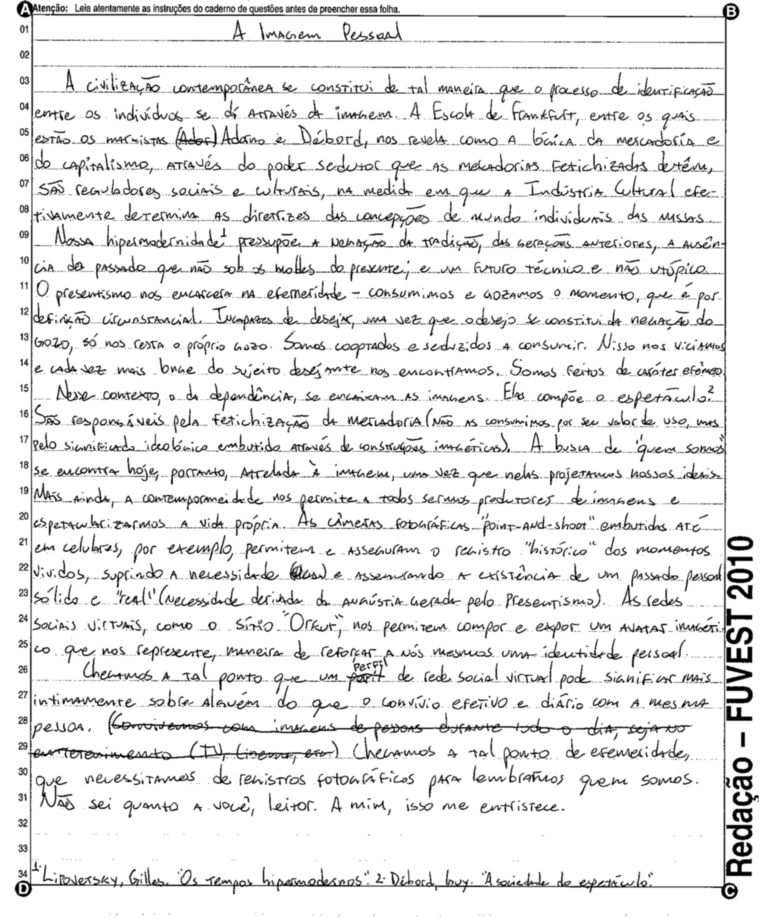 A Atenção: Leia atentamente as instruções do caderno de questões antes de preencher essa folha. B
01 A Imagem Pessoal
02
03 A civilização contemporânea se constitui de tal maneira que o processo de identificação
04 entre os indivíduos se dá através da imagem. A Escola de Frankfurt, entre os quais
05 estão os marxistas (Ador) Adorno e Débord, nos revela como a lógica da mercadoria e
06 do capitalismo, através do poder sedutor que as mercadorias fetichizadas detêm,
07 são reguladores sociais e culturais, na medida em que a Indústria Cultural efe-
08 tivamente determina as diretrizes das concepções de mundo individuais das massas.
09 Nossa hipermodernidade¹ pressupõe a negação da tradição, das gerações anteriores, a ausên-
10 cia do passado que não sob os moldes do presente; e um futuro técnico e não utópico.
11 O presentismo nos encarcera na efemeridade – consumimos e gozamos o momento, que é por
12 definição circunstancial. Incapazes de desejar, uma vez que o desejo se constitui da negação do
13 gozo, só nos resta o próprio gozo. Somos cooptados e seduzidos a consumir. Nisso nos viciamos
14 e cada vez mais longe do sujeito desejante nos encontramos. Somos feitos de caráter efêmero.
15 Nesse contexto, o da dependência, se encaixam as imagens. Elas compõe o espetáculo.²
16 São responsáveis pela fetichização da mercadoria (não as consumimos por seu valor de uso, mas
17 pelo significado ideológico embutido através de construções imagéticas). A busca de "quem somos"
18 se encontra hoje, portanto, atrelada à imagem, uma vez que nelas projetamos nossos ideais.
19 Mais ainda, a contemporaneidade nos permite a todos sermos produtores de imagens e
20 espetacularizarmos a vida própria. As câmeras fotográficas "point-and-shoot" embutidas até
21 em celulares, por exemplo, permitem e asseguram o registro "histórico" dos momentos
22 vividos, suprindo a necessidade e assegurando a existência de um passado pessoal
23 sólido e "real" (necessidade derivada da angústia gerada pelo presentismo). As redes
24 sociais virtuais, como o sítio "Orkut", nos permitem compor e expor um avatar imagéti-
25 co que nos represente, maneira de reforçar a nós mesmos uma identidade pessoal.
26 Chegamos a tal ponto que um perfil de rede social virtual pode significar mais
27 intimamente sobre alguém do que o convívio efetivo e diário com a mesma
28 pessoa. (Convivemos com imagens de pessoas durante todo o dia, seja no
29 entretenimento (TV, Cinema, etc) Chegamos a tal ponto de efemeridade,
30 que necessitamos de registros fotográficos para lembrarmos quem somos.
31 Não sei quanto a você, leitor. A mim, isso me entristece.
32
33
34 1. Lipovetsky, Gilles. "Os tempos hipermodernos". 2. Débord, Guy. "A sociedade do espetáculo".
D C
Redação – FUVEST 2010